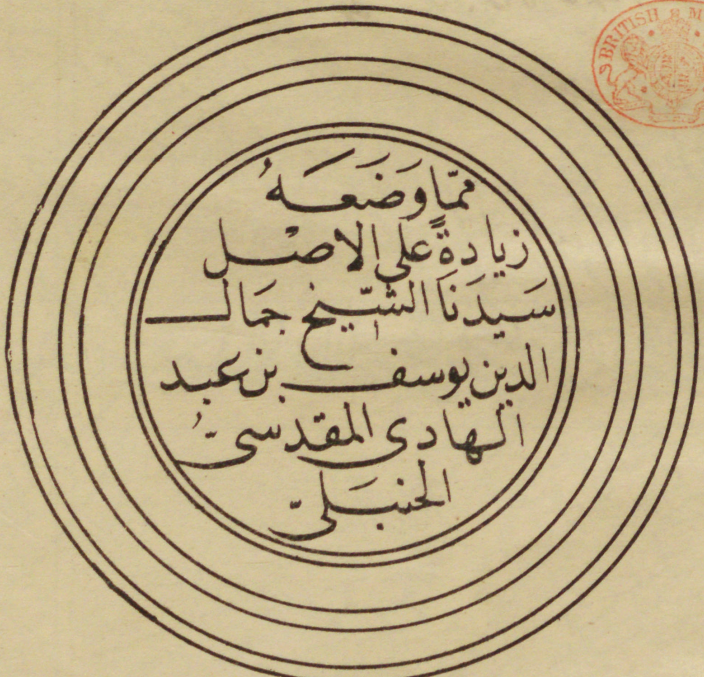 BRITISH M
ممّا وَضَعَهُ
زيادةً على الاصْل
سَيدَنَا الشّيخ جمَال
الدين يوسف بن عبد
الهادى المقدسىّ
الحنبَلىّ